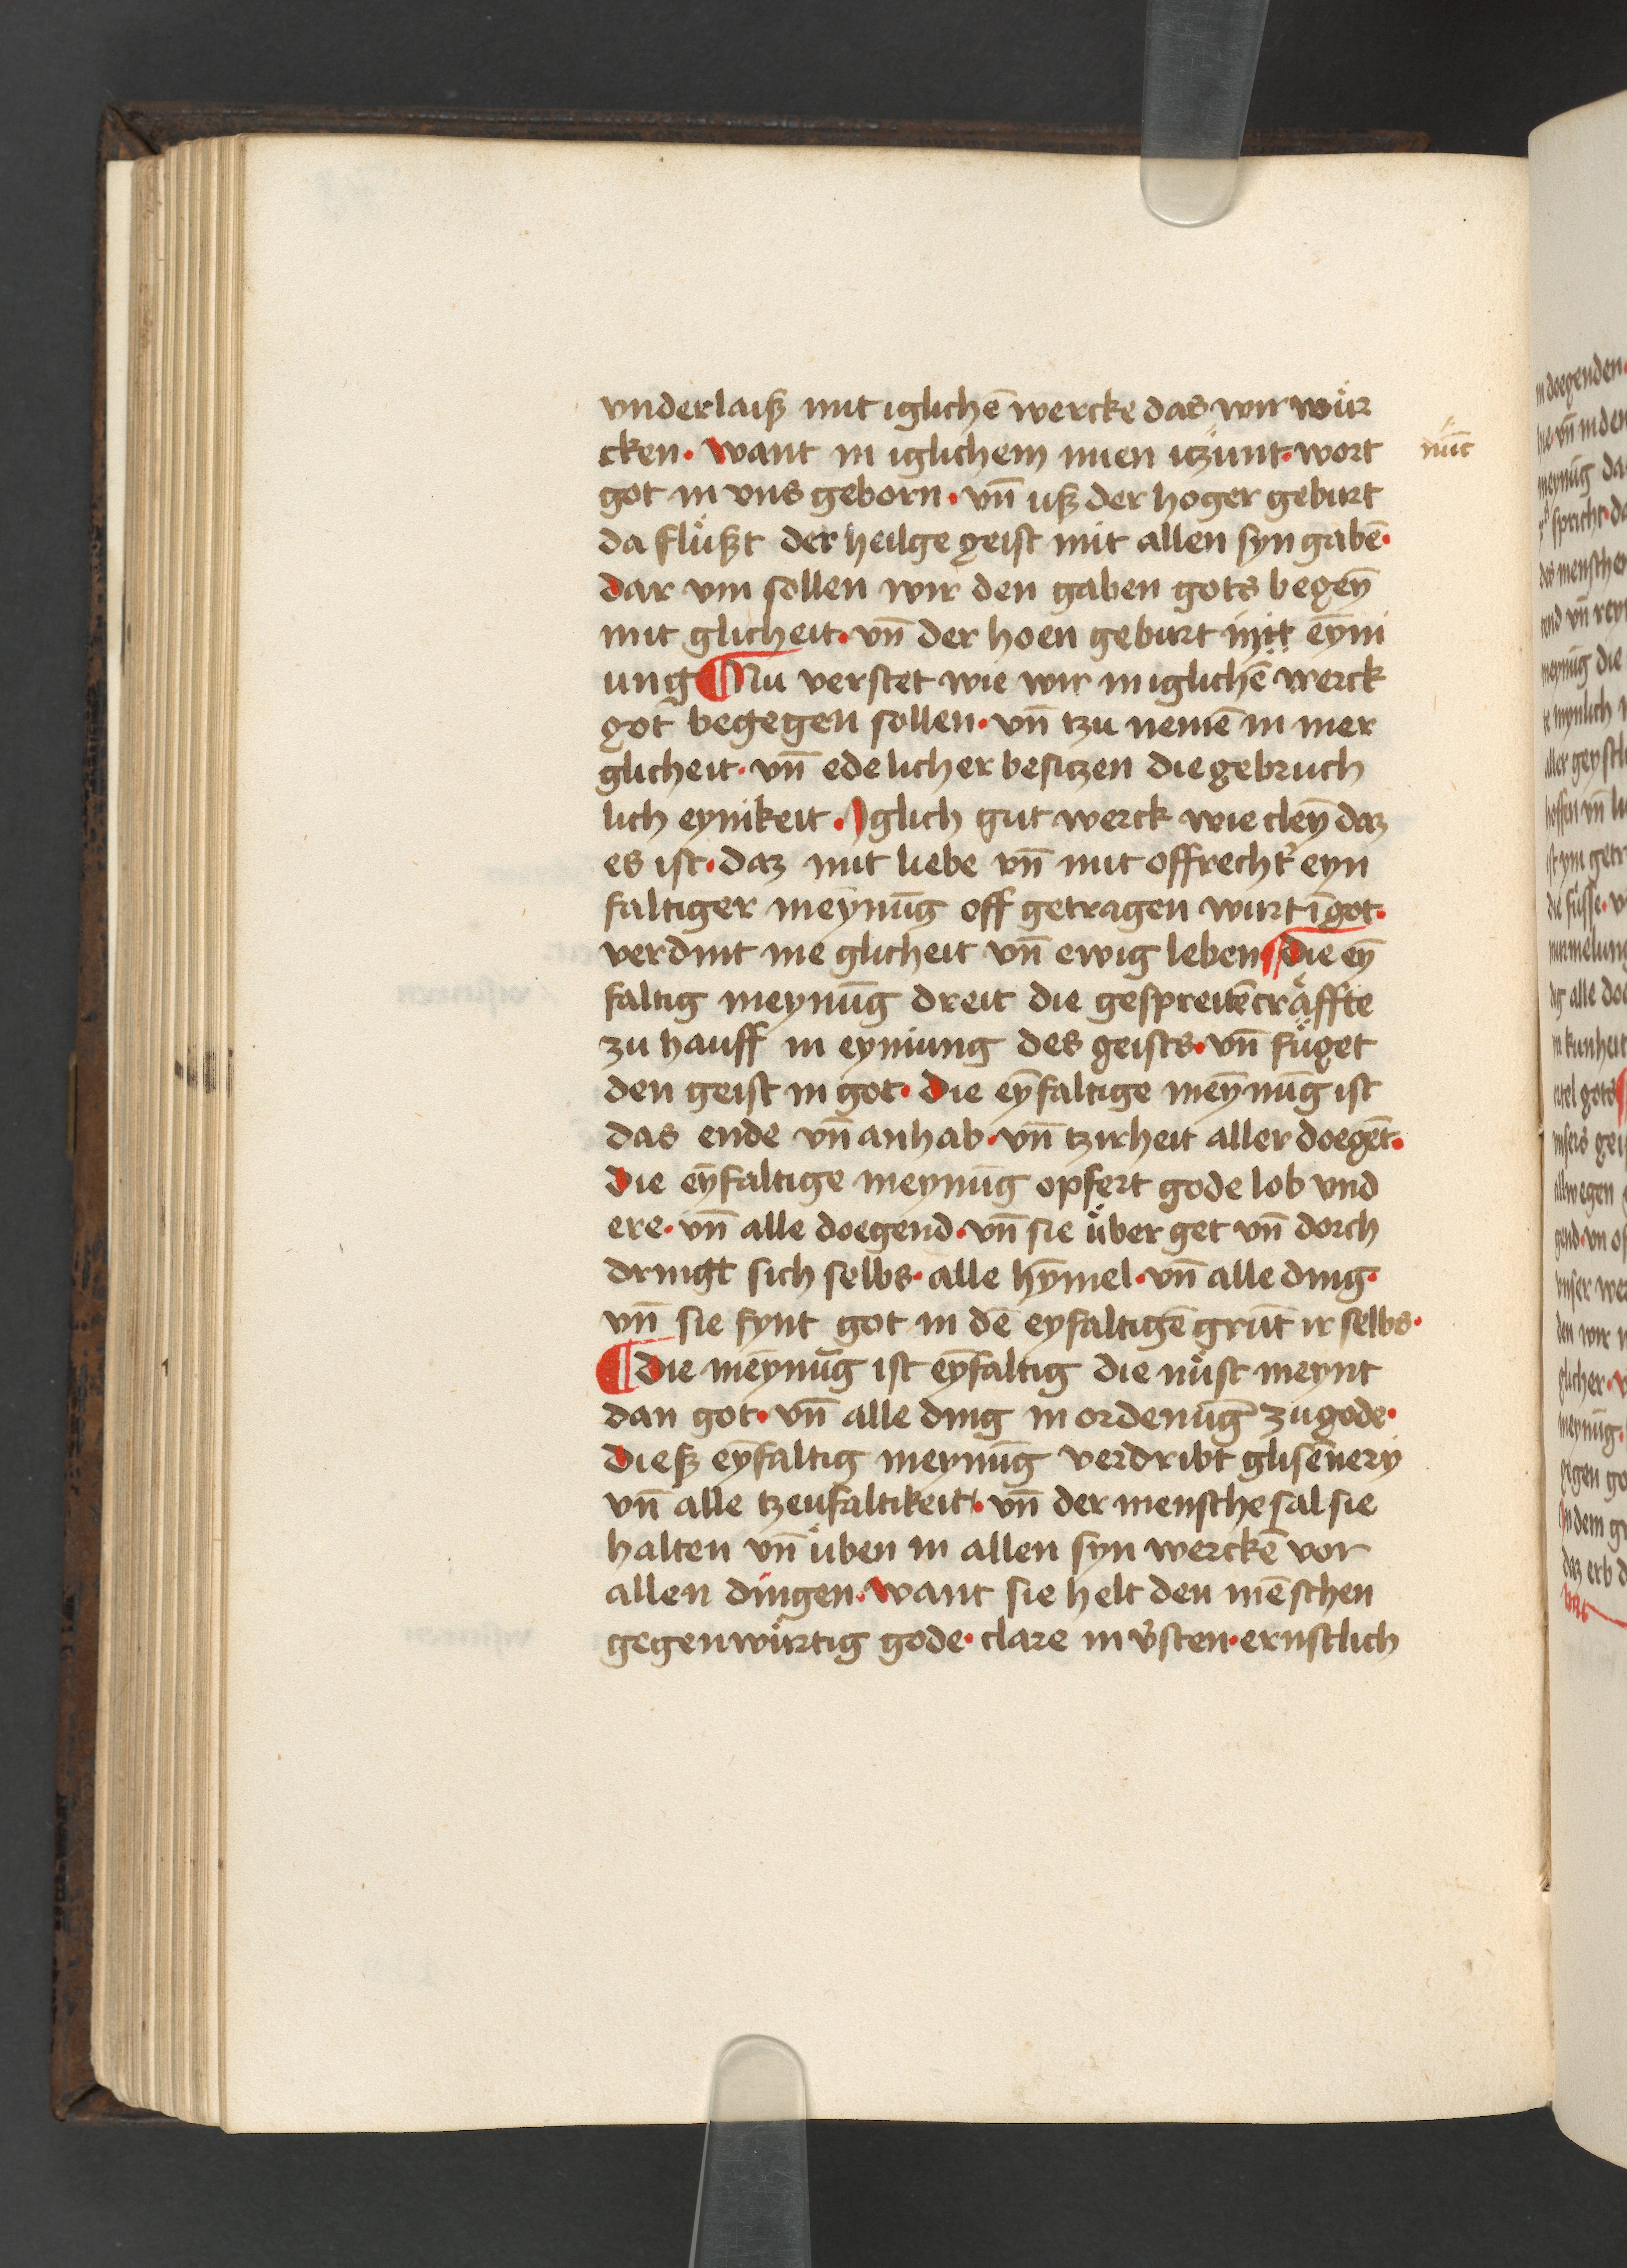 vnderlaiß mit iglichē wercke das wir wůr
cken · want in iglichem nuen iczunt · wort
nūc
got in vns geborn · vn̄ uß der hoger geburt
da flůßt der heilge geist mit allen syn gabē ·
dar vm sollen wir den gaben gots begey̅
mit glicheit · vn̄ der hoen geburt mit eyni
ung ¶ Nu verstet wie wir in iglichē werck
got begegen sollen · vn̄ tzu nemē in mer
glicheit · vn̄ edelicher besitzen die gebruch
lich eynikeit · Iglich gut werck wie cley̅ daz
es ist · daz mit liebe vn̄ mit offrecht' eyn
faltiger meynūg off getragen wirt ī got ·
verdint me glicheit vn̄ ewig leben ¶ die ey̅
faltig meynūg dreit die gespreitē cräffte
zu hauff in eyniung des geists · vn̄ fůget
den geist in got · die ey̅faltige mey̅nūg ist
das ende vn̄ anhab · vn̄ tzirheit aller doegēt ·
die ey̅faltige meynūg opfert gode lob vnd
ere · vn̄ alle doegend · vn̄ sie über get vn̄ dorch
dringt sich selbs · alle hy̅mel · vn̄ alle ding ·
vn̄ sie fynt got in dē eyfaltigē grūt ir selbs ·
¶ die mey̅nūg ist ey̅faltig die nůst meynt
dan got · vn̄ alle ding in ordenūg zu gode ·
dieß ey̅faltig meynūg verdribt glisēnery
vn̄ alle tzeufaltikeit · vn̄ der mensche sal sie
halten vn̄ üben in allen syn werckē vor
allen dingen · want sie helt den mēschen
gegenwůrtig gode · clare in v'sten · ernstlich